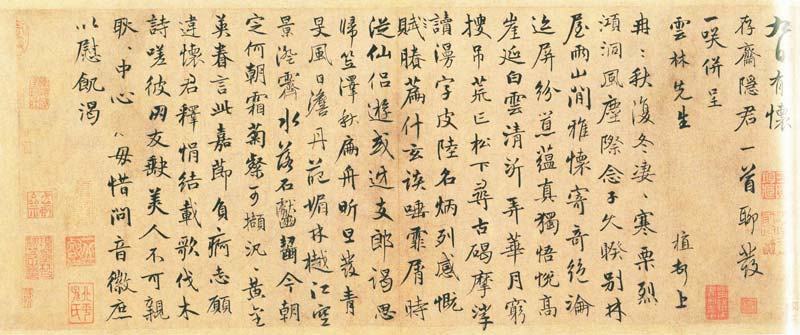 九日有懷
存齋隱君一首聊發
一咲併呈
雲林先生　植奉上
冉〻秋復冬淒〻寒栗烈
澒洞風塵際念子久暌別林
屋兩山間雅懷寄奇絕淪
迹屏紛道蘊真獨悟悅高
崖延白雲清沂弄華月窮
搜吊荒亡松下尋古碣摩挲
讀漫字皮陸名炳列感慨
賦勝篇什玄談唾霏屑時
從仙侶遊或述支郎謁思
歸笠澤秋扁舟昕旦發青
旻風日澹丹葩媚林樾江空
景澄霽水落石巘齧今朝
定何朝霜菊粲可擷況〻黃金
英眷言此嘉節負痾志願
違懷君釋悁結載歌伐木
詩嗟彼朋友缺美人不可親
耿〻中心〻毋惜問音徽庶
以慰飢渴